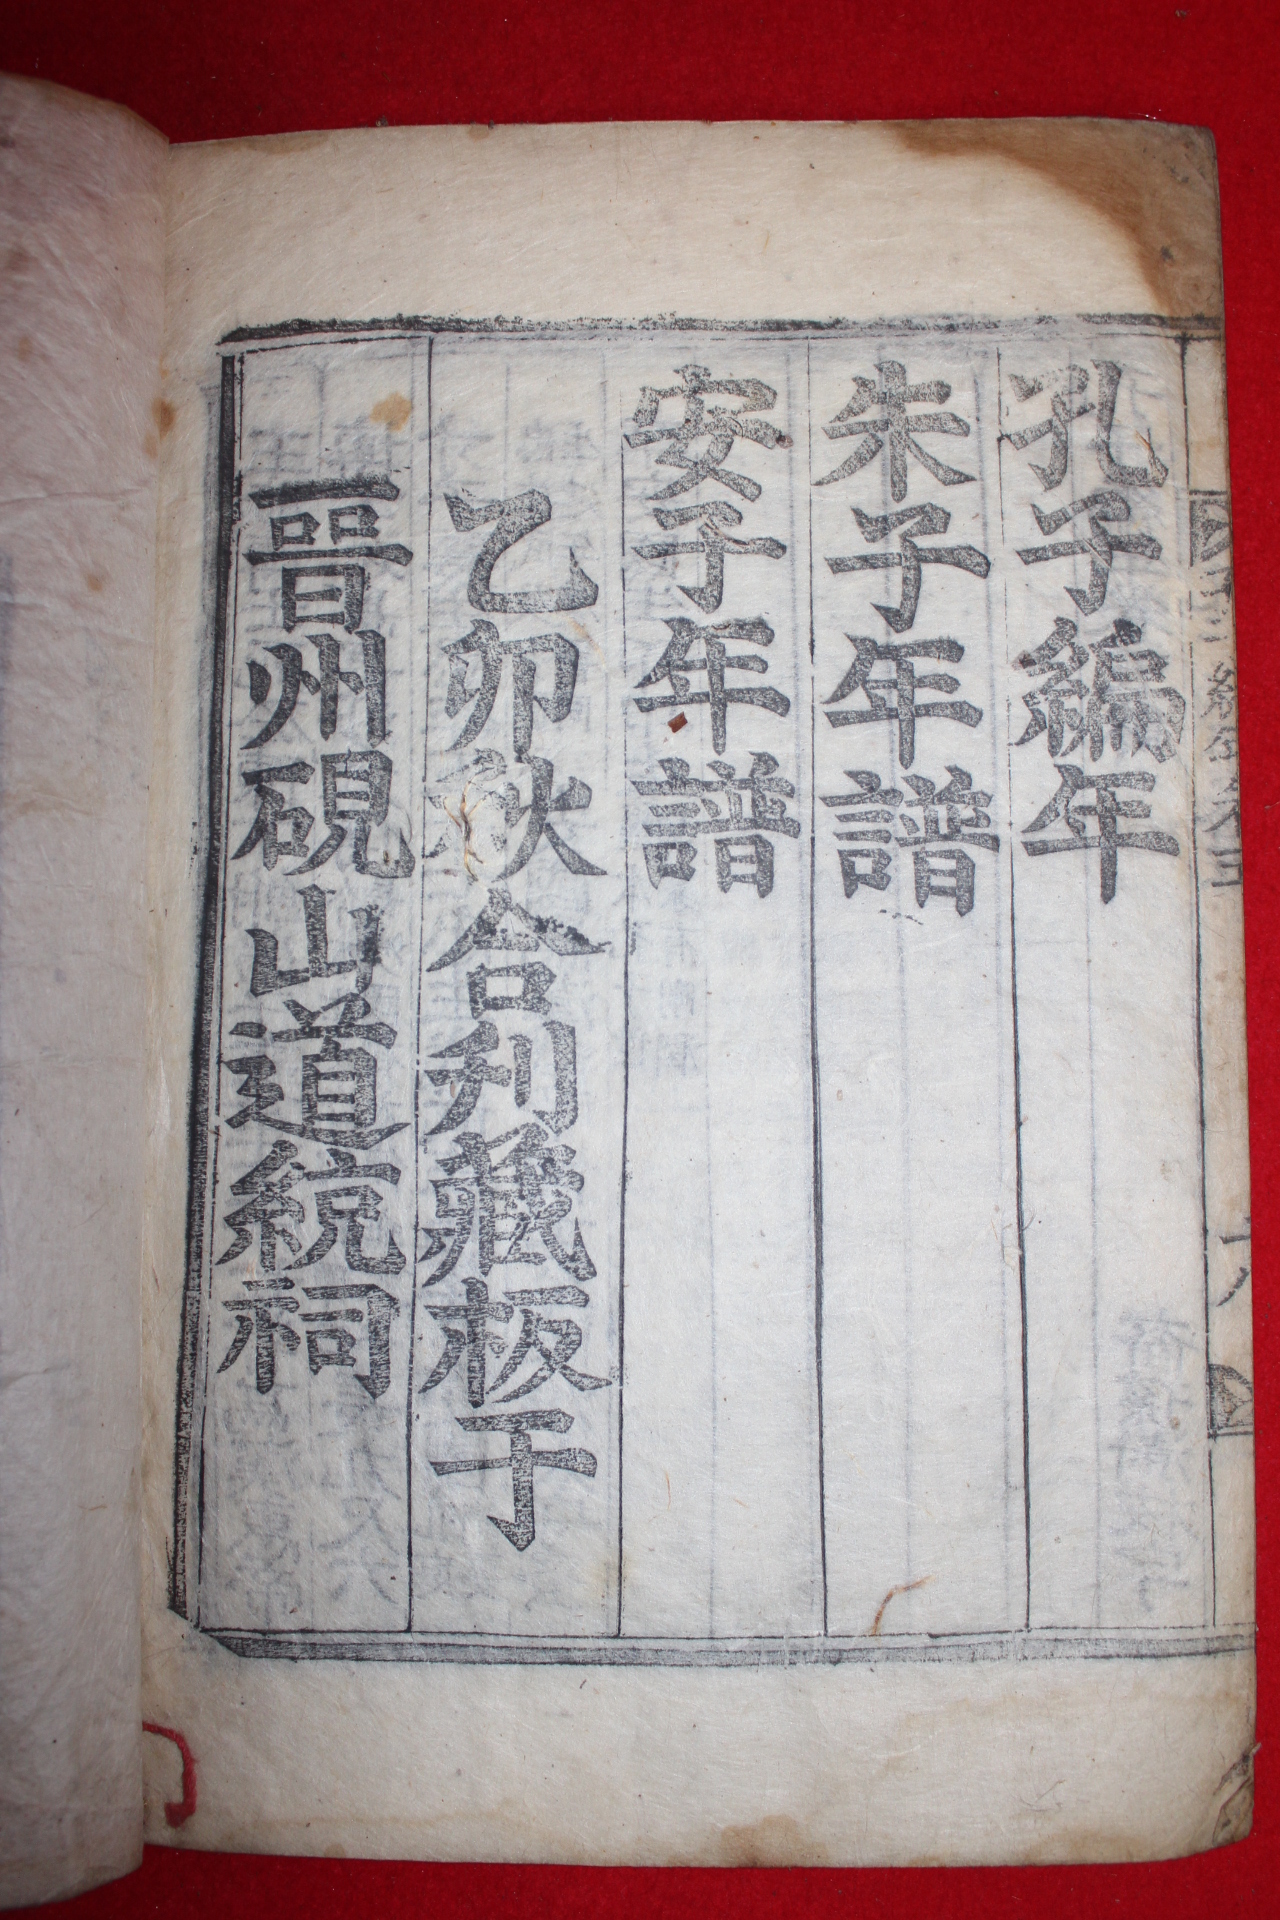 孔子編年
朱子年譜
安子年譜
乙卯秋合刋藏板于
晉州硯山道統祠